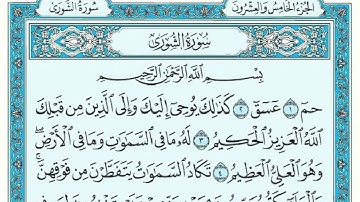 الجزء الخامس والعشرون
سورة الشورى
سورة الشورى
بسم الله الرحمن الرحيم
حم ١ عسق ٢ كذلك يوحي إليك وإلى الذين من قبلك
الله العزيز الحكيم ٣ له ما في السموات وما في الأرض
وهو العلي العظيم ٤ تكاد السموات يتفطرن من فوقهن